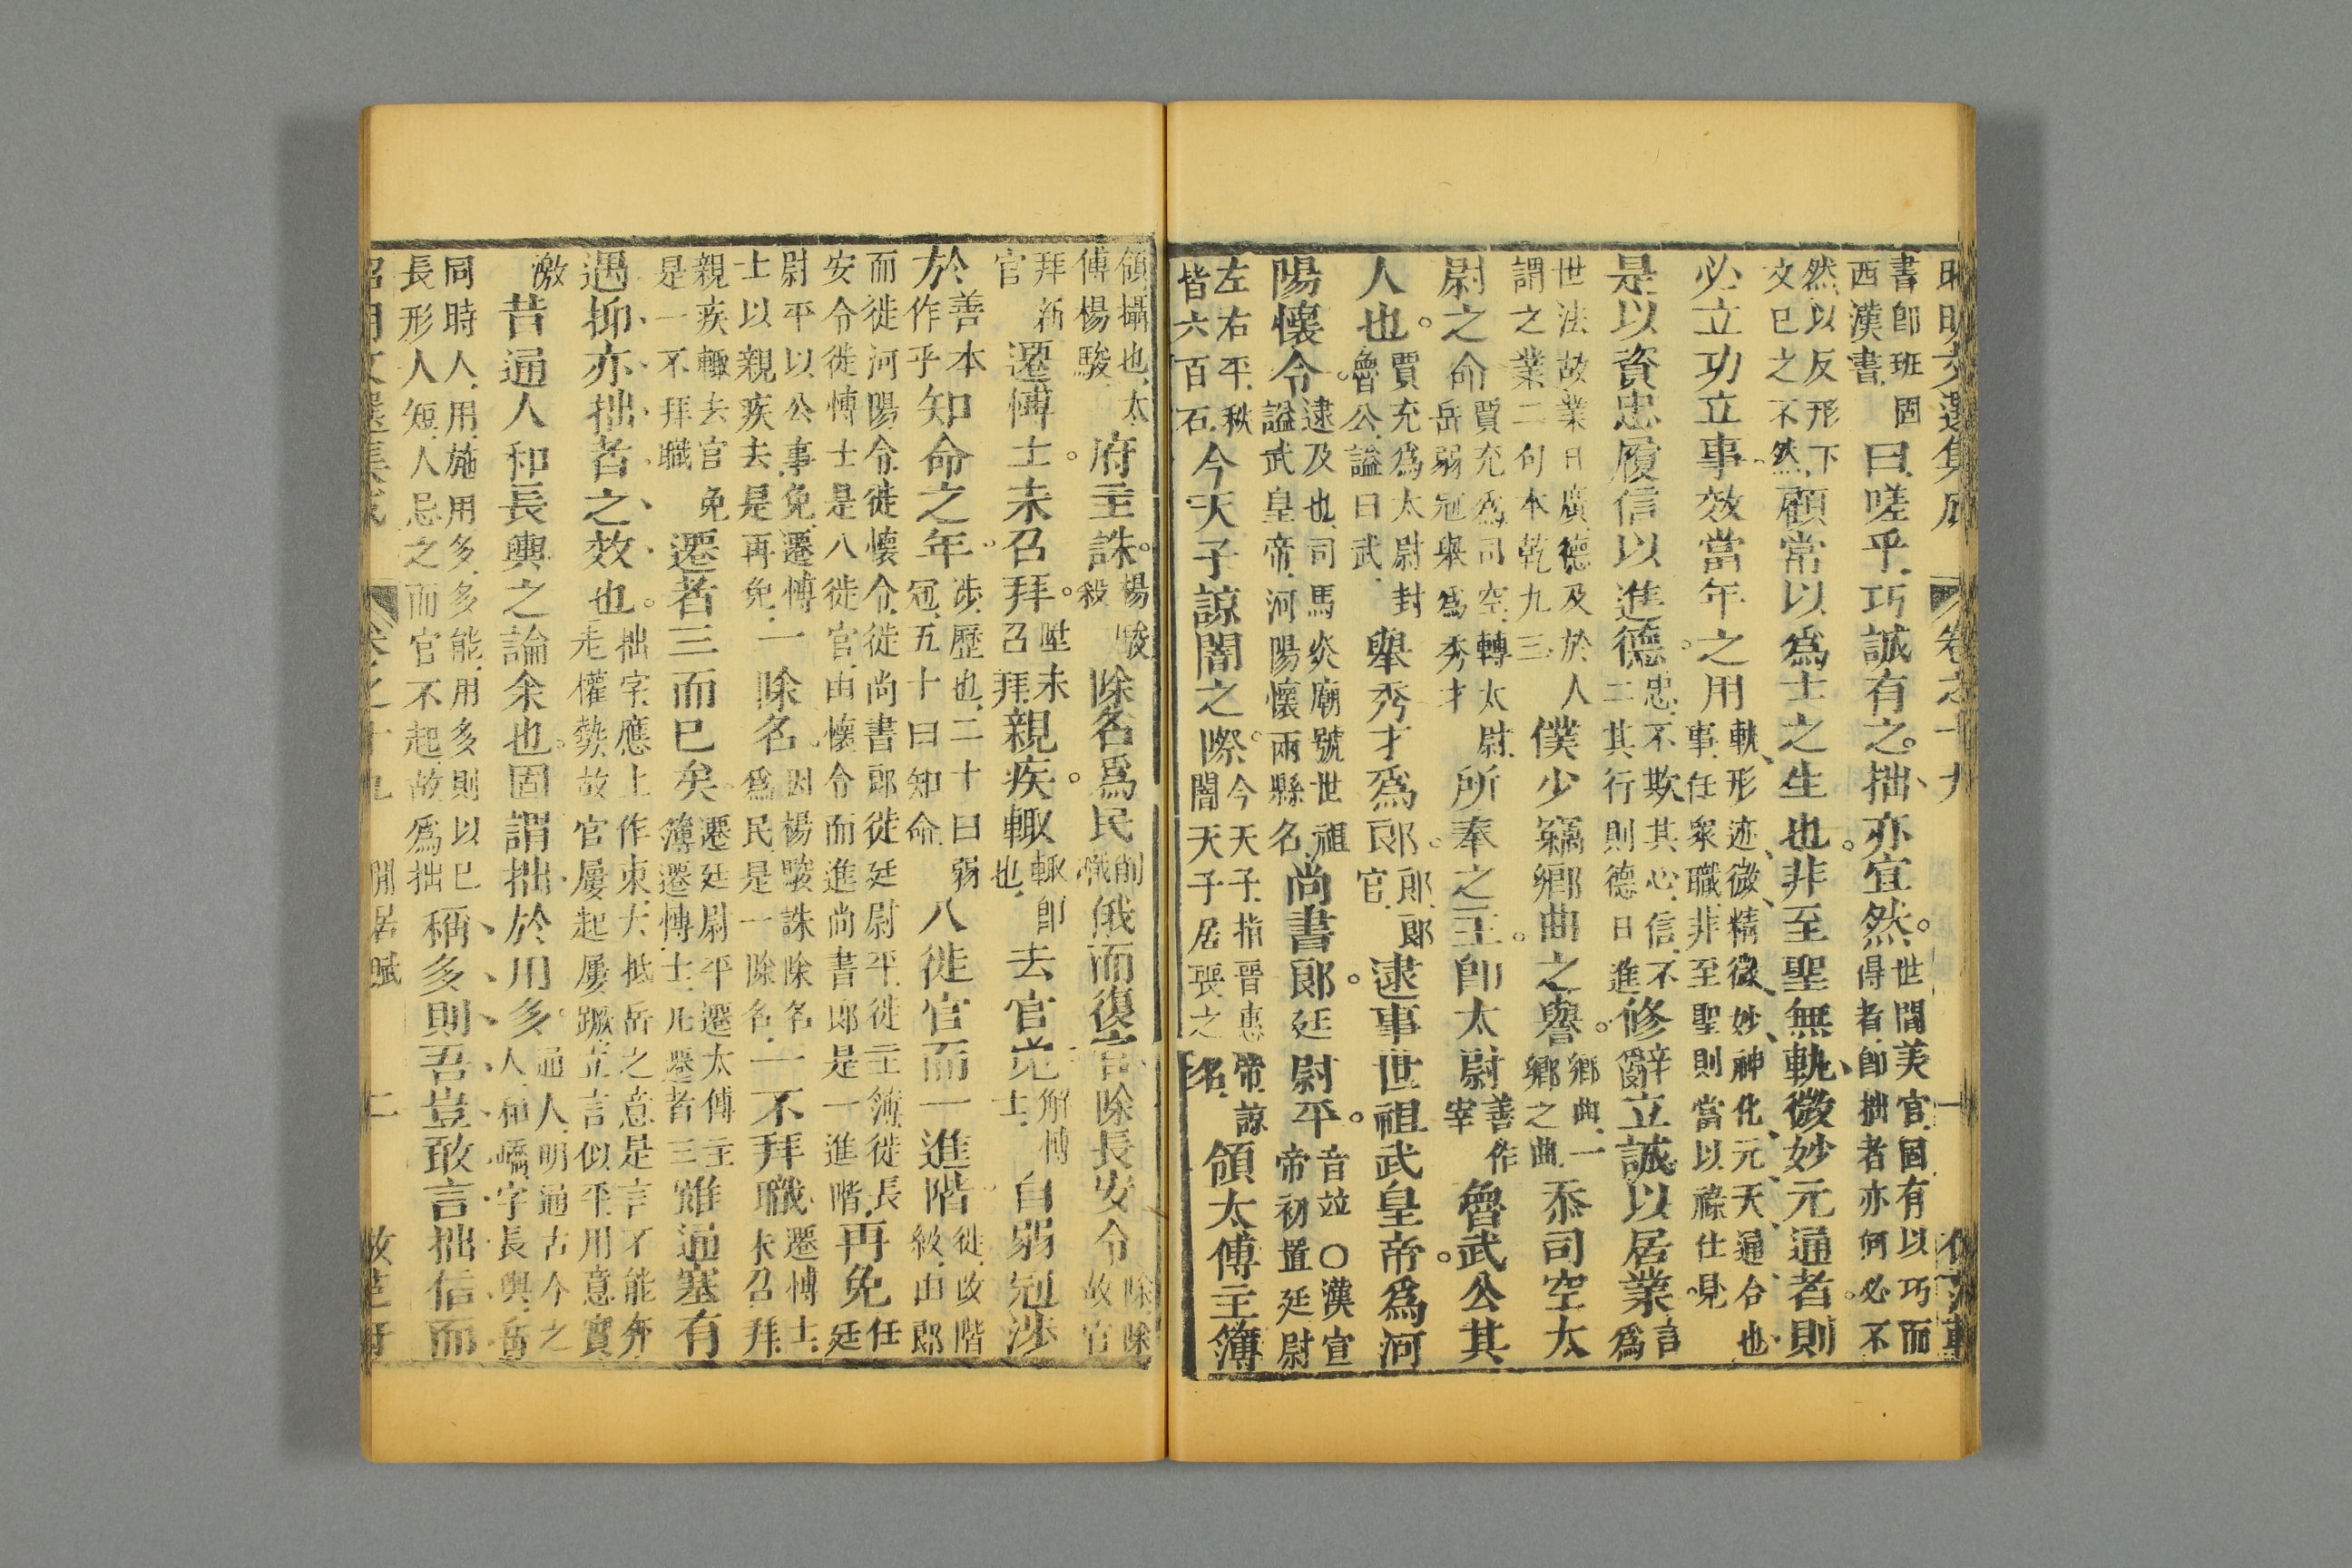 昭明文選集成 卷之十九 一
書卽班固西漢書曰嗟乎巧誠有之拙亦宜然世間美官固有以巧而得者卽拙者亦何必不
然以反形下文已之不然顧常以爲士之生也非至聖無軌微妙元通者則
必立功立事效當年之用軌形迹微精微妙神化元天通合也事任衆職非至聖則當以祿仕見
是以資忠履信以進德忠不欺其心信不二其行則德日進修辭立誠以居業言爲
世法故業日廣德及於人謂之業二句本乾九三僕少竊鄉曲之譽鄉曲一鄉之曲忝司空太
尉之命賈充爲司空轉太尉岳弱冠舉爲秀才所奉之主卽太尉善作宰魯武公其
人也賈充爲太尉封魯公諡曰武舉秀才爲郎郎郎官逮事世祖武皇帝爲河
陽懷令逮及也司馬炎廟號世祖諡武皇帝河陽懷兩縣名尚書郎廷尉平音竝〇漢宣帝初置廷尉
左右平秩皆六百石今天子諒闇之際今天子指晉惠帝諒闇天子居喪之名領太傅主簿
領攝也太傅楊駿府主誅楊駿殺除名爲民削職俄而復官除長安令除除故官
拜新官遷博士未召拜陞未召拜親疾輒輒卽也去官免解博士自弱冠涉
於善本作乎知命之年涉歷也二十曰弱冠五十曰知命八徙官而一進階徙改階級由郎
而徙河陽令徙懷令徙尚書郎徙廷尉平徙主簿徙長安令徙博士是八徙官由懷令而進尚書郎是一進階再免任廷
尉平以公事免遷博士以親疾去是再免一除名因楊駿誅除名爲民是一除名一不拜職遷博士未召拜
親疾輒去官免是一不拜職遷者三而已矣遷廷尉平遷太傅主簿遷博士凡遷者三雖通塞有
遇抑亦拙者之效也拙字應上作束大抵岳之意是言才能奔走權勢故官屢起屢蹶立言似平用意實
激昔通人和長輿之論余也固謂拙於用多通人明通古今之人和嶠字長輿岳
同時人用施用多多能用多則以已長形人短人忌之而官不起故爲拙稱多則吾豈敢言拙信而
昭明文選集成 卷之十九 閒居賦 二